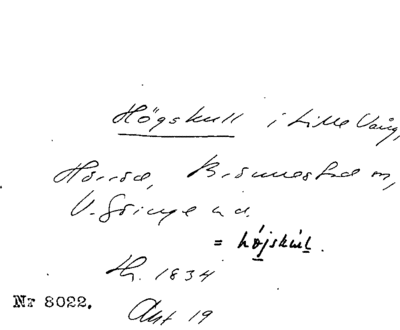 Högskull i Lille Vång,
Hörröd, Brönnestad sn,
V. Göinge hd.
= hǿjskúl.
Th. 1834
Nr 8022.
Akt 19